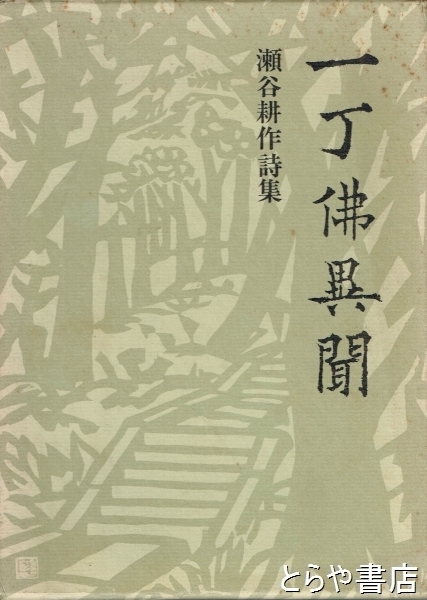 一丁佛異聞
瀬谷耕作詩集
とらや書店